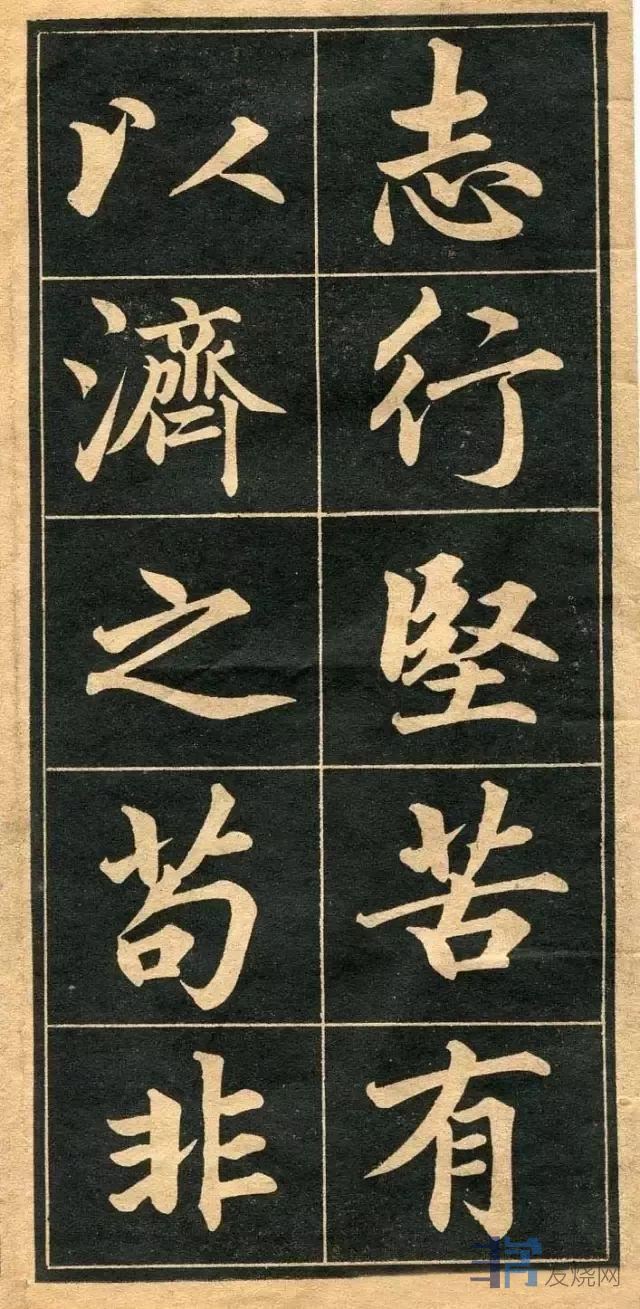 志行堅苦有
以濟之苟非
发烧网